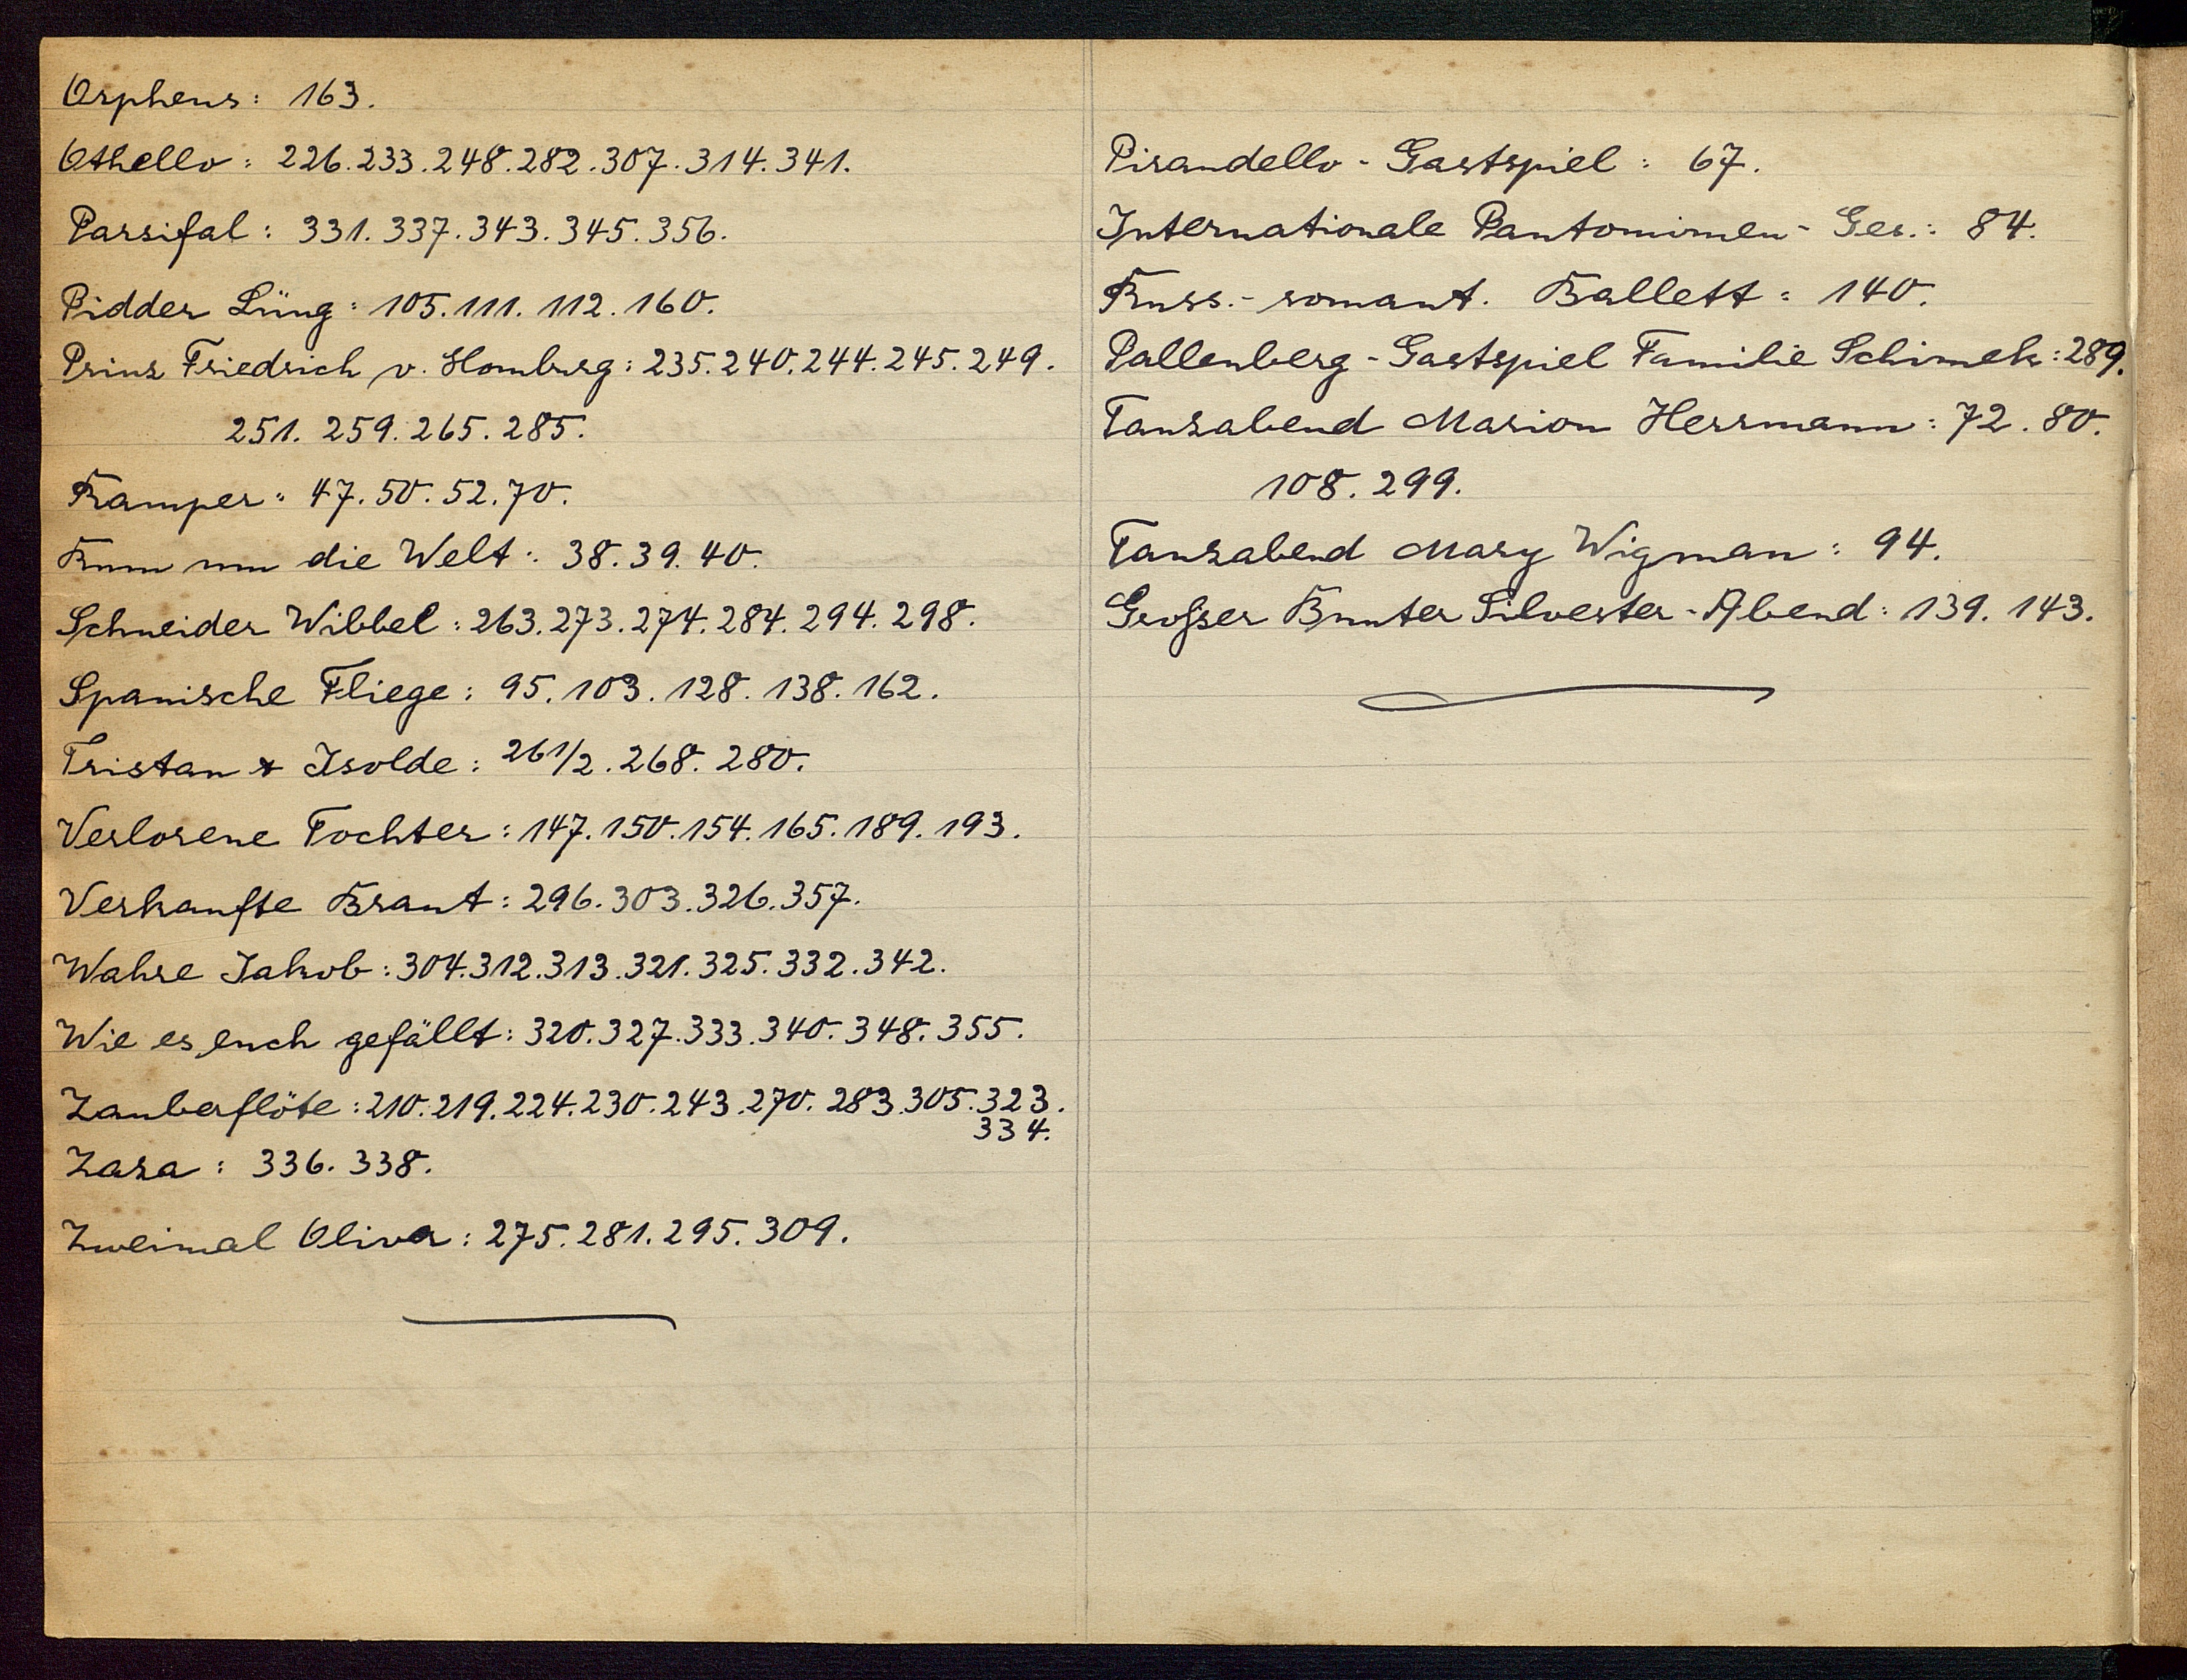 Orpheus: 163.
Othello: 226.233.248.282.307.314.341.
Parsifal: 331.337.343.345.356.
Pidder Lüng: 105.111.112.160.
Prinz Friedrich v. Homburg: 235.240.244.245.249.
251. 259. 265. 285.
Ramper: 47.50.52.70.
Rum um die Welt: 38.39.40.
Schneider Wibbel: 263.273.274.284.294.298.
Spanische Fliege: 95.103.128.138.162.
Tristan & Isolde: 261/2.268.280.
Verlorene Tochter: 147.150.154.165.189.193.
Verkaufte Braut: 296.303.326.357.
Wahre Jakob: 304.312.313.321.325.332.342.
Wie es euch gefällt: 320.327.333.340.348.355.
Zauberflöte: 210.219.224.230.243.270.283.305.323.
334.
Zaza: 336.338.
Zweimal Oliver: 275.281.295.309.
Pirandello-Gastspiel: 67.
Internationale Pantomimen-Ges.: 84.
Russ.-romant. Ballett: 140.
Pallenberg-Gastspiel Familie Schimek: 289.
Tanzabend Marion Herrmann: 72. 80.
108. 299.
Tanzabend Mary Wigman: 94.
Großer Bunter Silvester-Abend: 139. 143.